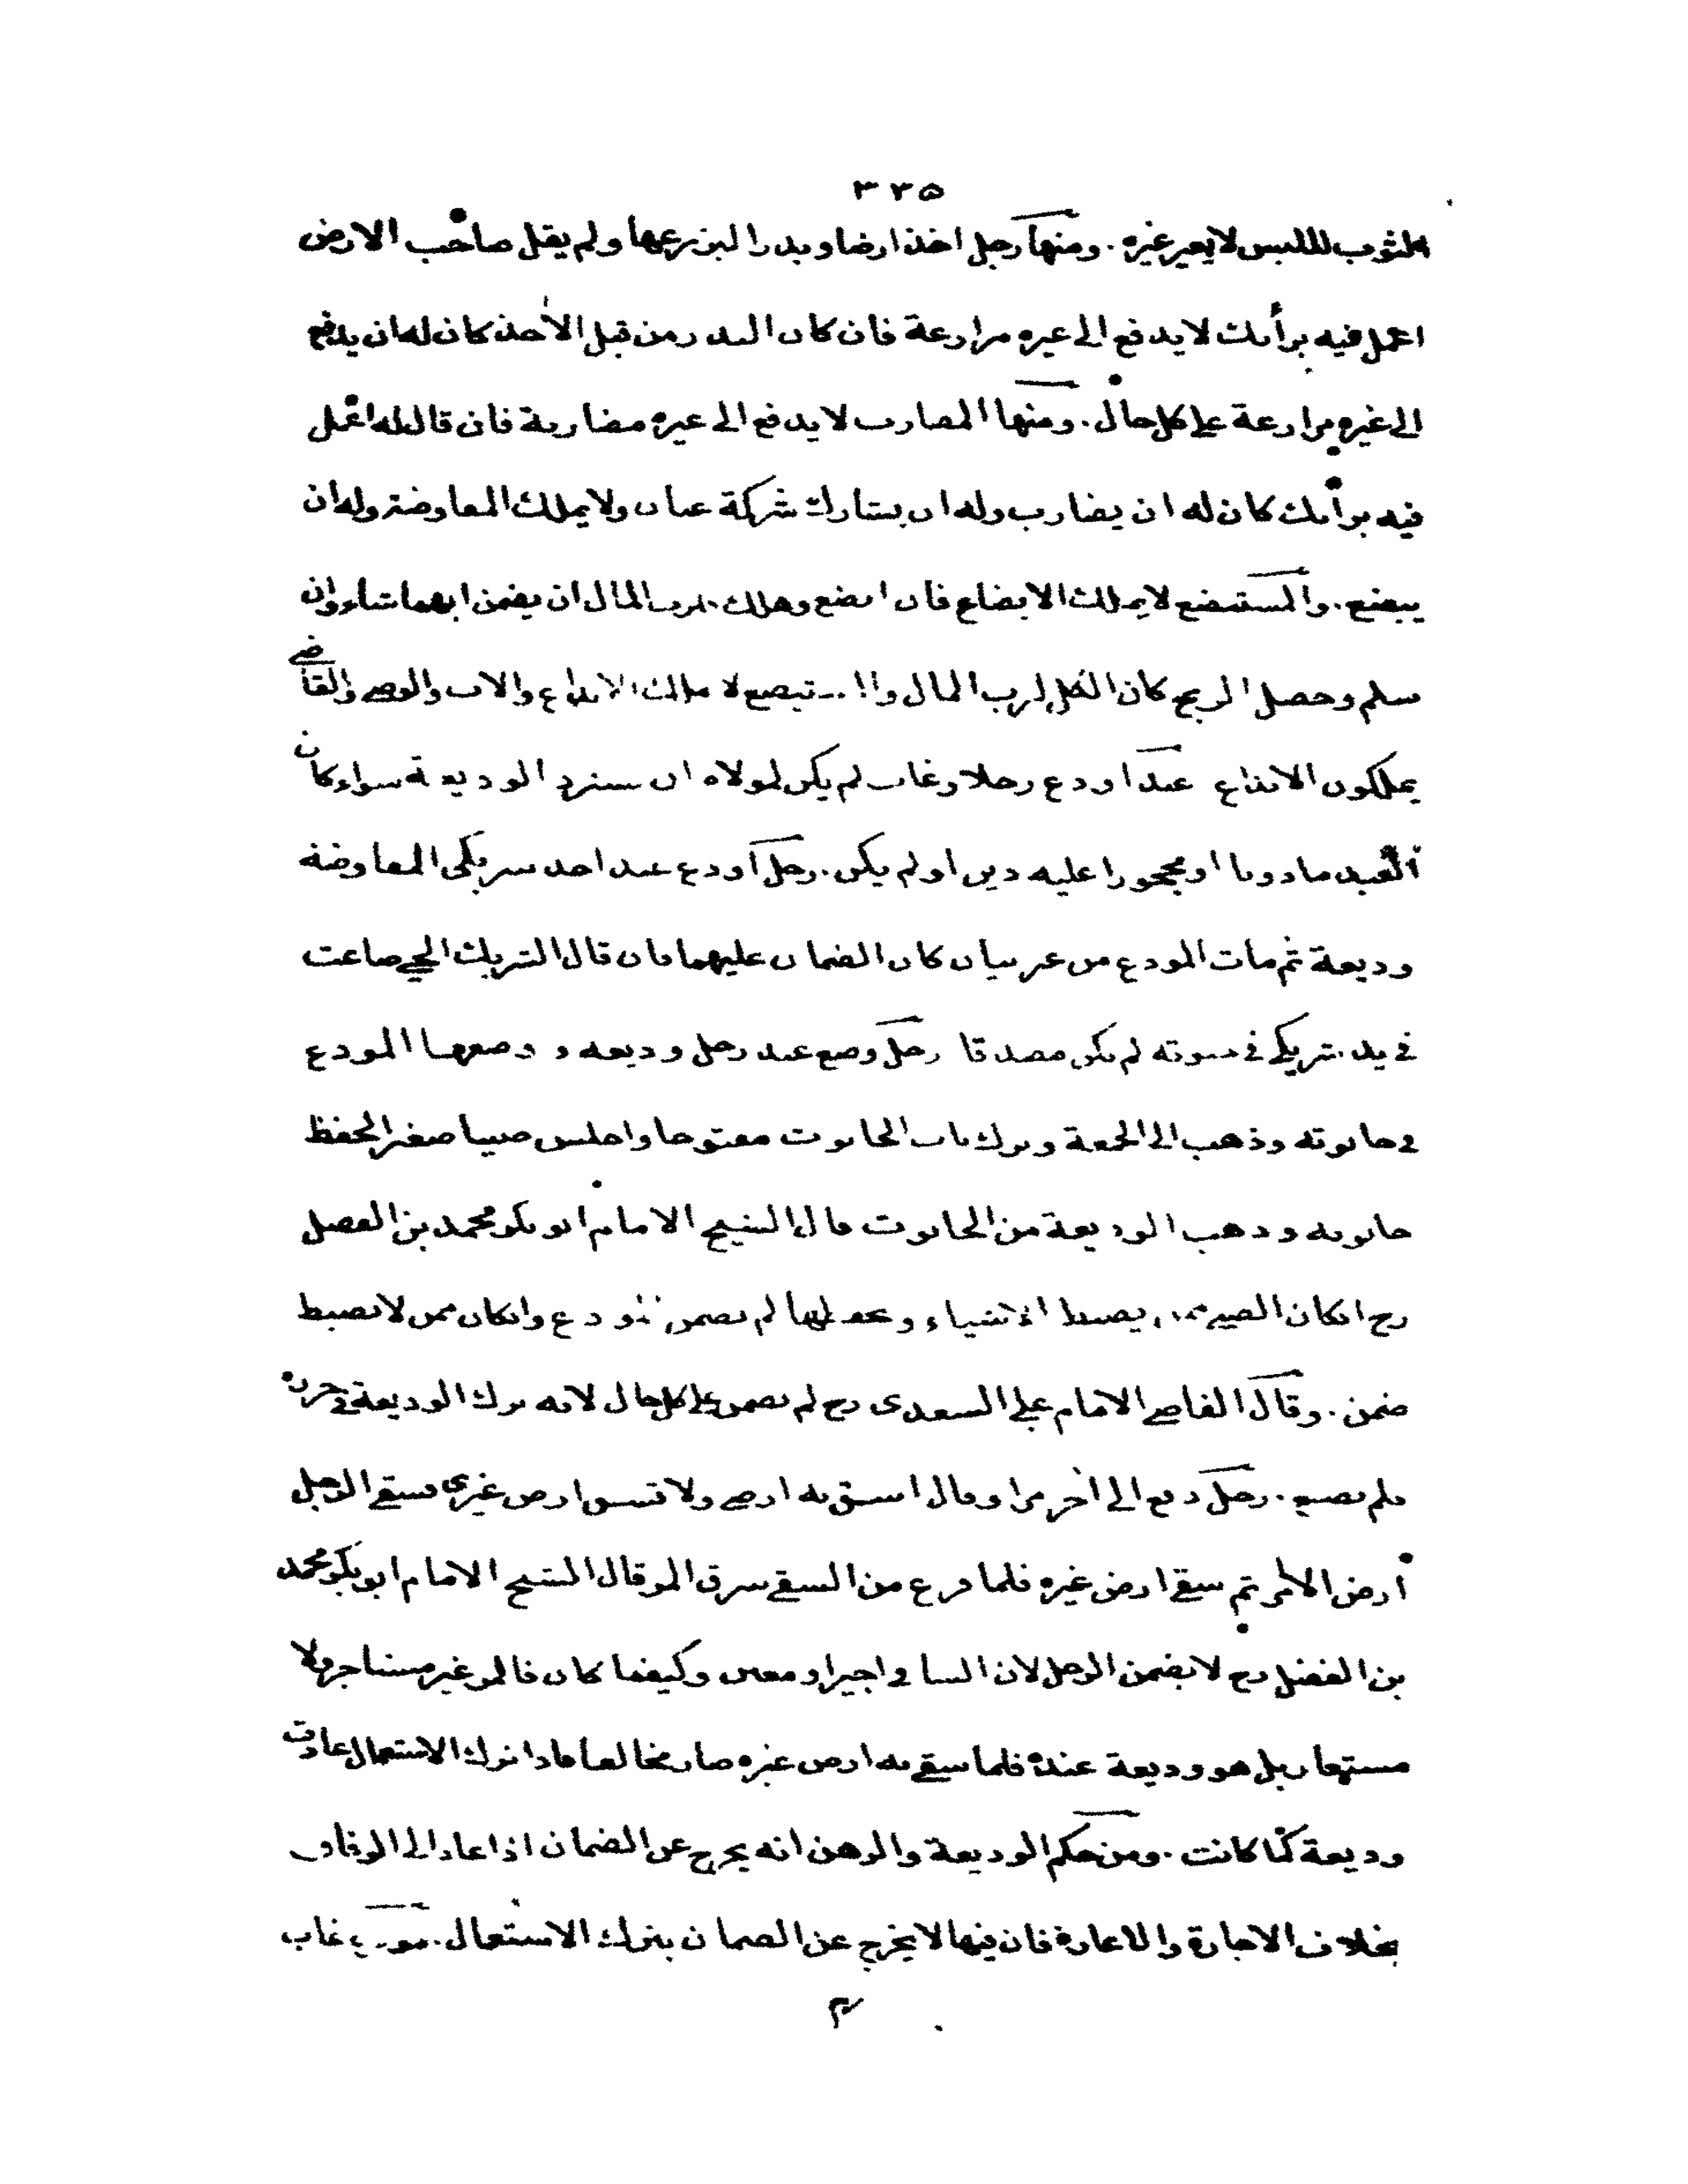 ٣٢٥
الثوب لللبس لا يعير غيره . ومنها رجل اخذ ارضا وبذرا ليزرعها ولم يقل صاحب الارض
اعمل فيه برأيك لا يدفع الى غيره مزارعة فان كان البذر من قبل الآخذ كان له ان يدفع
الى غيره مزارعة على كل حال . ومنها المضارب لا يدفع الى غيره مضاربة فان قال له اعمل
فيه برأيك كان له ان يضارب وله ان يشارك شركة عنان ولا يملك المفاوضة وله ان
يبضع . والمستبضع لا يملك الابضاع فان ابضع وهلك لرب المال ان يضمن ايهما شاء وان
سلم وحصل الربح كان الكل لرب المال والمستبضع لا يملك الايداع والاب والوصي والقاضي
يملكون الايداع عبد اودع رجلا وغاب لم يكن لمولاه ان يسترد الوديعة سواء كان
العبد ماذونا او محجورا عليه دين او لم يكن . رجل اودع عند احد شريكي المفاوضة
وديعة ثم مات المودع من غير بيان كان الضمان عليهما فان قال الشريك الحي ضاعت
في يد شريكي في حيوته لم يكن مصدقا رجل وضع عند رجل وديعة و وضعها المودع
في حانوته وذهب الى الجمعة وترك باب الحانوت مفتوحا واجلس صبيا صغيرا لحفظ
حانوته وذهب الوديعة من الحانوت قال الشيخ الامام ابو بكر محمد بن الفضل
رح ان كان الصبي ممن يضبط الاشياء ويحفظها لم يضمن المودع وان كان ممن لا يضبط
ضمن . وقال القاضي الامام علي السعدي رح لم يضمن على كل حال لانه ترك الوديعة في حرزه
فلم يضيع . رجل دفع الى آخر مرا وقال اسق به ارضي ولا تسق ارض غيري فسقى الرجل
ارض الآمر ثم سقى ارض غيره فلما فرغ من السقي سرق المر قال الشيخ الامام ابو بكر محمد
بن الفضل رح لا يضمن الرجل لان الساقي اجير او معين وكيفما كان فالمر غير مستاجر ولا
مستعار بل هو وديعة عنده فلما سقى به ارض غيره صار مخالفا فاذا ترك الاستعمال عادت
وديعة كما كانت . ومن حكم الوديعة والرهن انه يخرج عن الضمان اذا عاد الى الوفاق
بخلاف الاجارة والاعارة فان فيها لا يخرج عن الضمان بترك الاستعمال . غاب